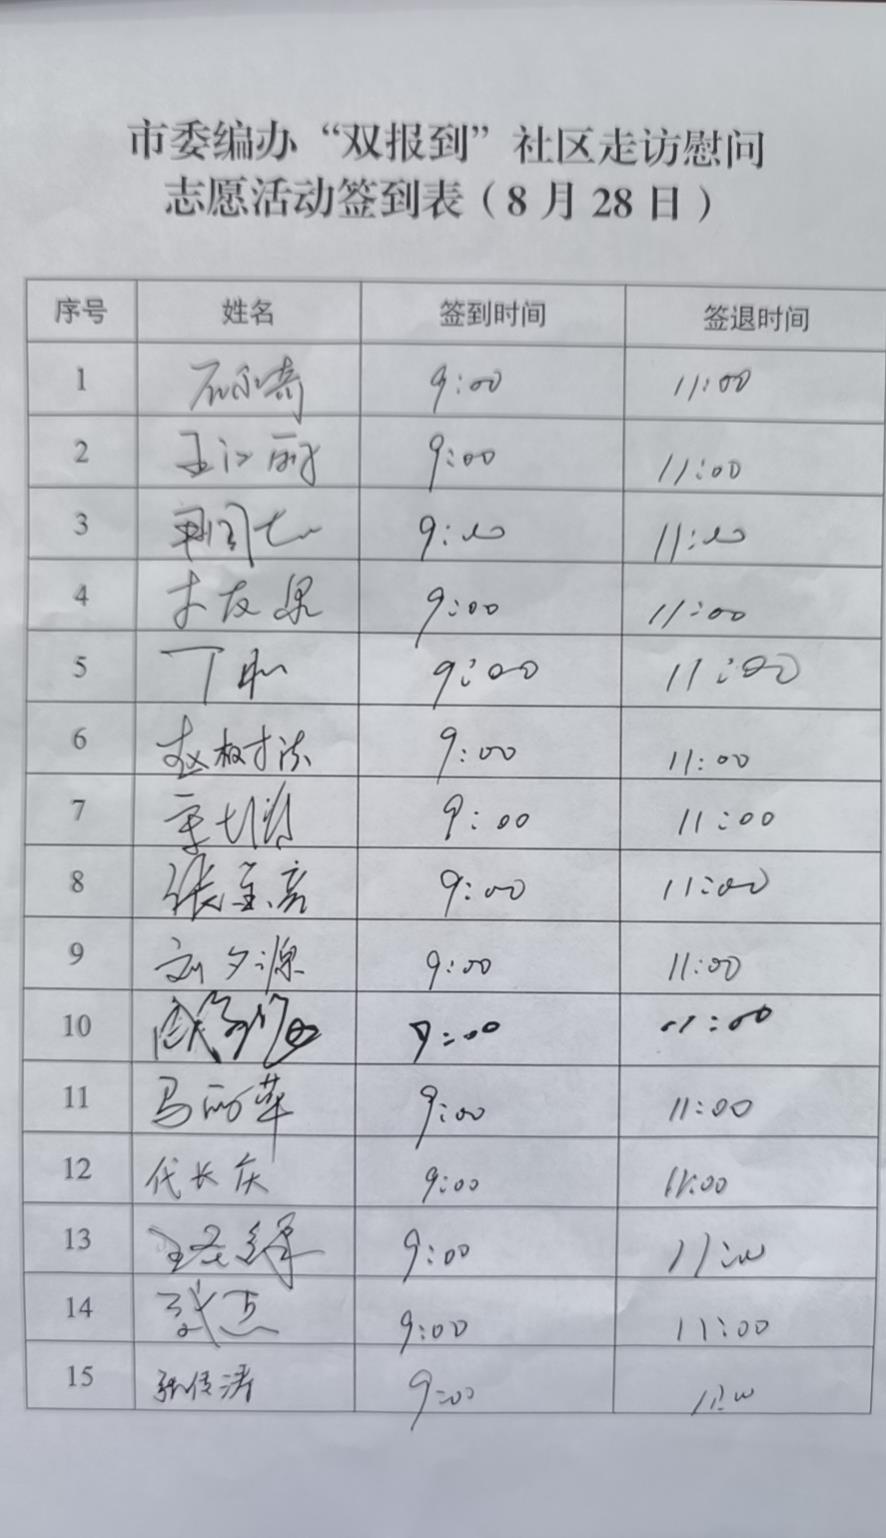 市委编办“双报到”社区走访慰问
志愿活动签到表（8月28日）
序号 姓名 签到时间 签退时间
1 9:00 11:00
2 王江丽 9:00 11:00
3 9:00 11:00
4 9:00 11:00
5 丁 9:00 11:00
6 赵树法 9:00 11:00
7 9:00 11:00
8 张金亮 9:00 11:00
9 刘夕源 9:00 11:00
10 9:00 11:00
11 马丽华 9:00 11:00
12 代长庆 9:00 11:00
13 9:00 11:00
14 9:00 11:00
15 张传涛 9:00 11:00